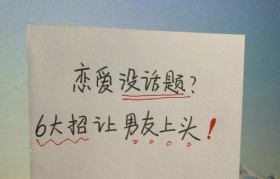 恋爱没话题?
6大招让男友上头!